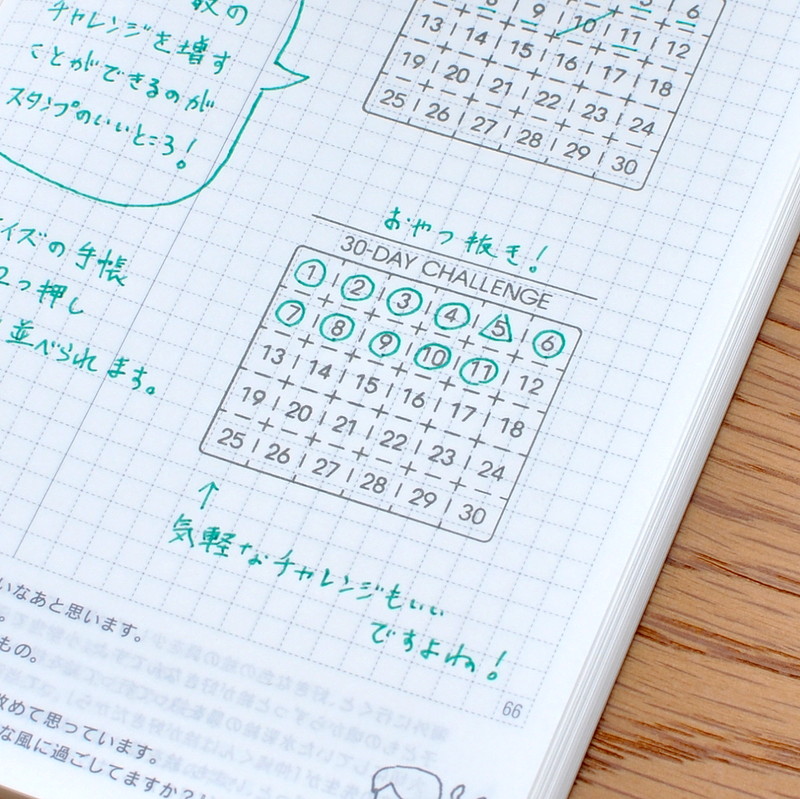 数の
チャレンジを増す
ことができるのが
スタンプのいいところ!
イズの手帳
2つ押し
並べられます。
5 6
8 9 10 11 12
13 14 15 16 17 18
19 20 21 22 23 24
25 26 27 28 29 30
おやつ抜き!
30-DAY CHALLENGE
1 2 3 4 5 6
7 8 9 10 11 12
13 14 15 16 17 18
19 20 21 22 23 24
25 26 27 28 29 30
↑
気軽なチャレンジもいい
ですよね!
いなあと思います。
もの。
改めて思っています。
な風に過ごしてますか?
66